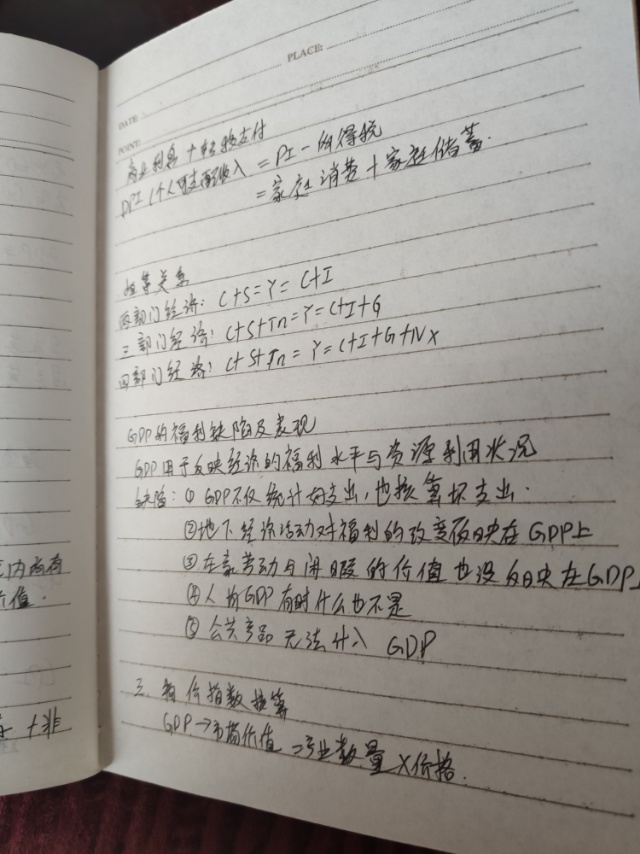 PLACE:
DATE:
POINT:
商业利息+转移支付
DPI(个人可支配收入)=PI-所得税
=家庭消费+家庭储蓄.
恒等关系
两部门经济: C+S=Y=C+I
三部门经济: C+S+Tn=Y=C+I+G
四部门经济: C+S+Tn=Y=C+I+G+NX
GDP的福利缺陷及表现
GDP用于反映经济的福利水平与资源利用状况
缺陷: ① GDP不仅统计好支出,也核算坏支出.
②地下经济活动对福利的改变反映在GDP上
③在家劳动与闲暇的价值也没反映在GDP上
④人均GDP有时什么也不是
⑤公共产品无法计入 GDP
三. 物价指数核算
GDP→市场价值 =产业数量×价格.
内所有
价值.
+非